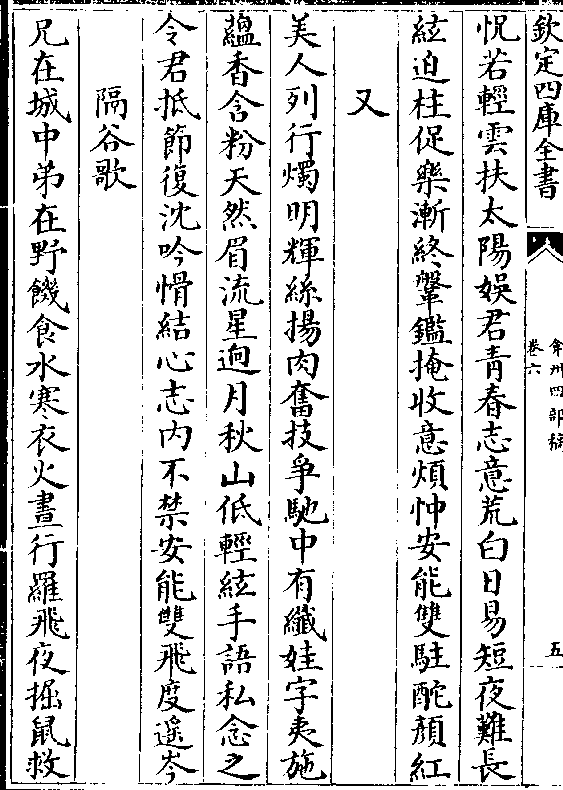 欽定四庫全書
弇州四部稿
卷六
五
怳若輕雲扶太陽娛君青春志意荒白日易短夜難長
絃迫柱促樂漸終鞶鑑掩收意煩忡安能雙駐酡顏紅
又
美人列行燭明輝絲揚肉奮技爭馳中有纖娃字夷施
蘊香含粉天然眉流星迵月秋山低輕絃手語私念之
令君抵節復沈吟愲結心志内不禁安能雙飛度遥岑
隔谷歌
兄在城中弟在野饑食水寒衣火晝行羅飛夜掘鼠救